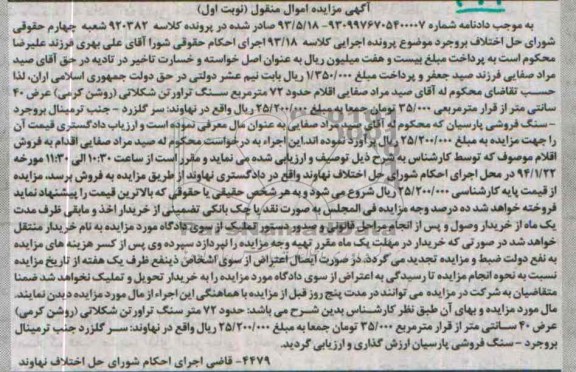 آگهی مزایده اموال منقول (نوبت اول)
به موجب دادنامه شماره ۹۳۰۹۹۷۶۷۰۵۴۰۰۰۰۷-۹۳/۵/۱۸ صادر شده در پرونده کلاسه ۹۲۰۳۸۲ شعبه چهارم حقوقی
شورای حل اختلاف بروجرد موضوع پرونده اجرایی کلاسه ۹۳/۱۸ اجرای احکام حقوقی شورا آقای علی بهری فرزند علیرضا
محکوم است به پرداخت مبلغ بیست و هفت میلیون ریال به عنوان اصل خواسته و خسارت تاخیر در تادیه در حق آقای صید
مراد صفایی فرزند صید جعفر و پرداخت مبلغ ۱/۳۵۰/۰۰۰ ریال بابت نیم عشر دولتی در حق دولت جمهوری اسلامی ایران، لذا
حسب تقاضای محکوم له آقای صید مراد صفایی اقلام حدود ۷۲ مترمربع سنگ تراورتن شکلاتی (روشن کرمی) عرض ۴۰
سانتی متر از قرار مترمربعی ۳۵/۰۰۰ تومان جمعا به مبلغ ۲۵/۲۰۰/۰۰۰ ریال واقع در نهاوند: سر گلزرد - جنب ترمینال بروجرد
- سنگ فروشی پارسیان که محکوم له آقای صید مراد صفایی به عنوان مال معرفی نموده است و ارزیاب دادگستری قیمت آن
را جهت مزایده به مبلغ ۲۵/۲۰۰/۰۰۰ ریال برآورد نموده اند. این اجراء به درخواست محکوم له صید مراد صفایی اقدام به فروش
اقلام موصوف که توسط کارشناس به شرح ذیل توصیف و ارزیابی شده می نماید و مقرر است از ساعت ۱۰:۳۰ الی ۱۱:۳۰ مورخه
۹۴/۱/۲۲ در محل اجرای احکام شورای حل اختلاف نهاوند واقع در دادگستری نهاوند از طریق مزایده به فروش برسد. مزایده
از قیمت پایه کارشناسی ۲۵/۲۰۰/۰۰۰ ریال شروع می شود و به هر شخص حقیقی یا حقوقی که بالاترین قیمت را پیشنهاد نماید
فروخته خواهد شد ده درصد وجه مزایده فی المجلس به صورت نقد یا چک بانکی تضمینی از خریدار اخذ و مابقی ظرف مدت
یک ماه از خریدار وصول و پس از انجام مراحل قانونی و صدور دستور تملیک از سوی دادگاه مورد مزایده به نام خریدار منتقل
خواهد شد در صورتی که خریدار در مهلت یک ماه مقرر تهیه وجه مزایده را نپردازد سپرده وی پس از کسر هزینه های مزایده
به نفع دولت ضبط و مزایده تجدید می گردد. در صورت ایصال اعتراض از سوی اشخاص ذینفع ظرف یک هفته از تاریخ مزایده
نسبت به نحوه انجام مزایده تا رسیدگی به اعتراض از سوی دادگاه مورد مزایده را به خریدار تحویل و تملیک نخواهد شد ضمنا
متقاضیان به شرکت در مزایده می توانند در مدت پنج روز قبل از مزایده با هماهنگی این اجراء از مال مورد مزایده دیدن نمایند.
مال مورد مزایده و بهای آن طبق نظر کارشناس بدین شرح می باشد: حدود ۷۲ متر سنگ تراورتن شکلاتی (روشن کرمی)
عرض ۴۰ سانتی متر از قرار مترمربع ۳۵/۰۰۰ تومان جمعا به مبلغ ۲۵/۲۰۰/۰۰۰ ریال واقع در نهاوند: سر گلزرد جنب ترمینال
بروجرد - سنگ فروشی پارسیان ارزش گذاری و ارزیابی گردید.
۴۴۷۹- قاضی اجرای احکام شورای حل اختلاف نهاوند